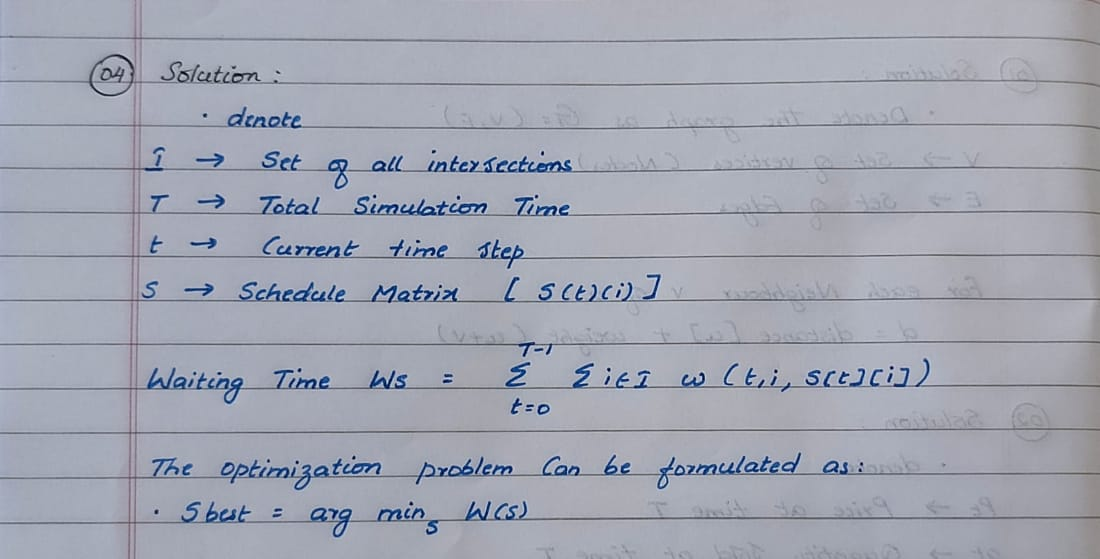 04 Solution :
• denote
I → Set of all intersections
T → Total Simulation Time
t → Current time step
S → Schedule Matrix [ S(t)(i) ]
T-1
Waiting Time Ws = Σ Σ i∈I w (t,i, S[t][i])
t=0
The optimization problem Can be formulated as:
• Sbest = arg min s W(s)